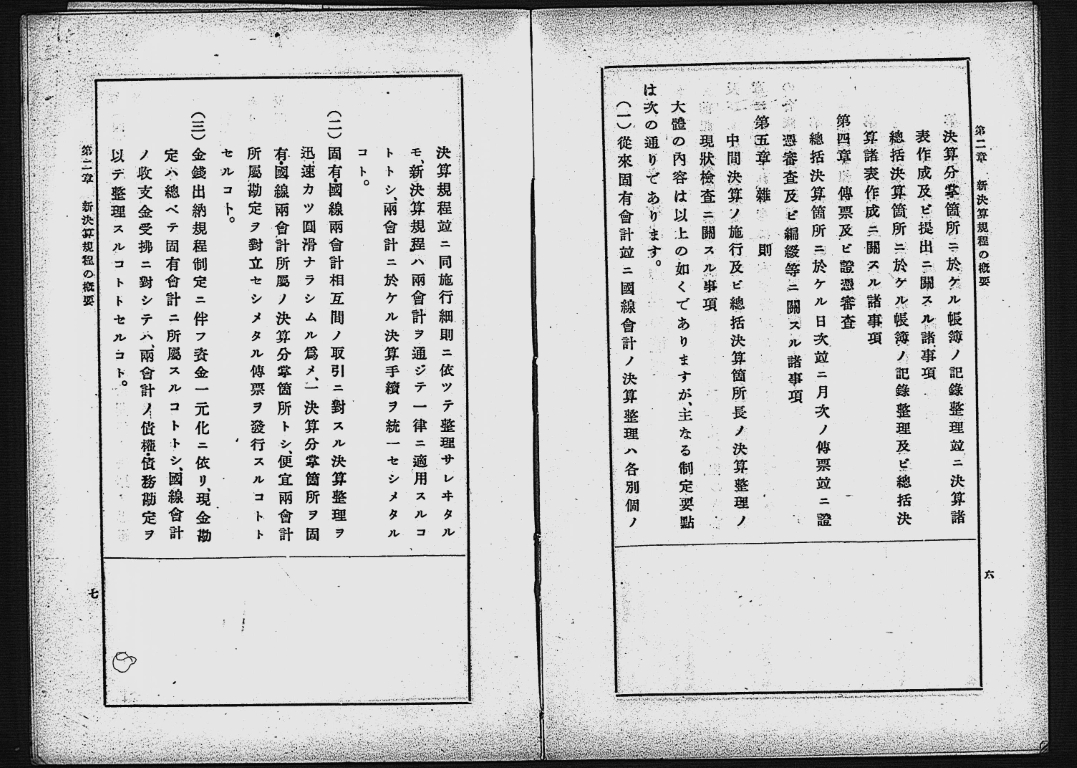 第二章 新決算規程の概要
決算分掌箇所ニ於ケル帳簿ノ記錄整理竝ニ決算諸
表作成及ビ提出ニ關スル諸事項
總括決算箇所ニ於ケル帳簿ノ記錄整理及ビ總括決
算諸表作成ニ關スル諸事項
第四章 傳票及ビ證憑審査
總括決算箇所ニ於ケル日次竝ニ月次ノ傳票竝ニ證
憑審査及ビ編綴等ニ關スル諸事項
第五章 雜則
中間決算ノ施行及ビ總括決算箇所長ノ決算整理ノ
現狀檢査ニ關スル事項
大體の內容は以上の如くでありますが、主なる制定要點
は次の通りであります。
(一)從來固有會計竝ニ國線會計ノ決算整理ハ各別個ノ
六
決算規程竝ニ同施行細則ニ依ツテ整理サレヰタル
モ、新決算規程ハ兩會計ヲ通ジテ一律ニ適用スルコ
トトシ、兩會計ニ於ケル決算手續ヲ統一セシメタル
コト。
(二)固有・國線兩會計相互間ノ取引ニ對スル決算整理ヲ
迅速カツ圓滑ナラシムル爲メ、一決算分掌箇所ヲ固
有・國線兩會計所屬ノ決算分掌箇所トシ、便宜兩會計
所屬勘定ヲ對立セシメタル傳票ヲ發行スルコトト
セルコト。
(三)金錢出納規程制定ニ伴フ資金一元化ニ依リ、現金勘
定ハ總ベテ固有會計ニ所屬スルコトトシ、國線會計
ノ收支金受拂ニ對シテハ、兩會計ノ債權・債務勘定ヲ
以テ整理スルコトトセルコト。
第二章 新決算規程の概要
七